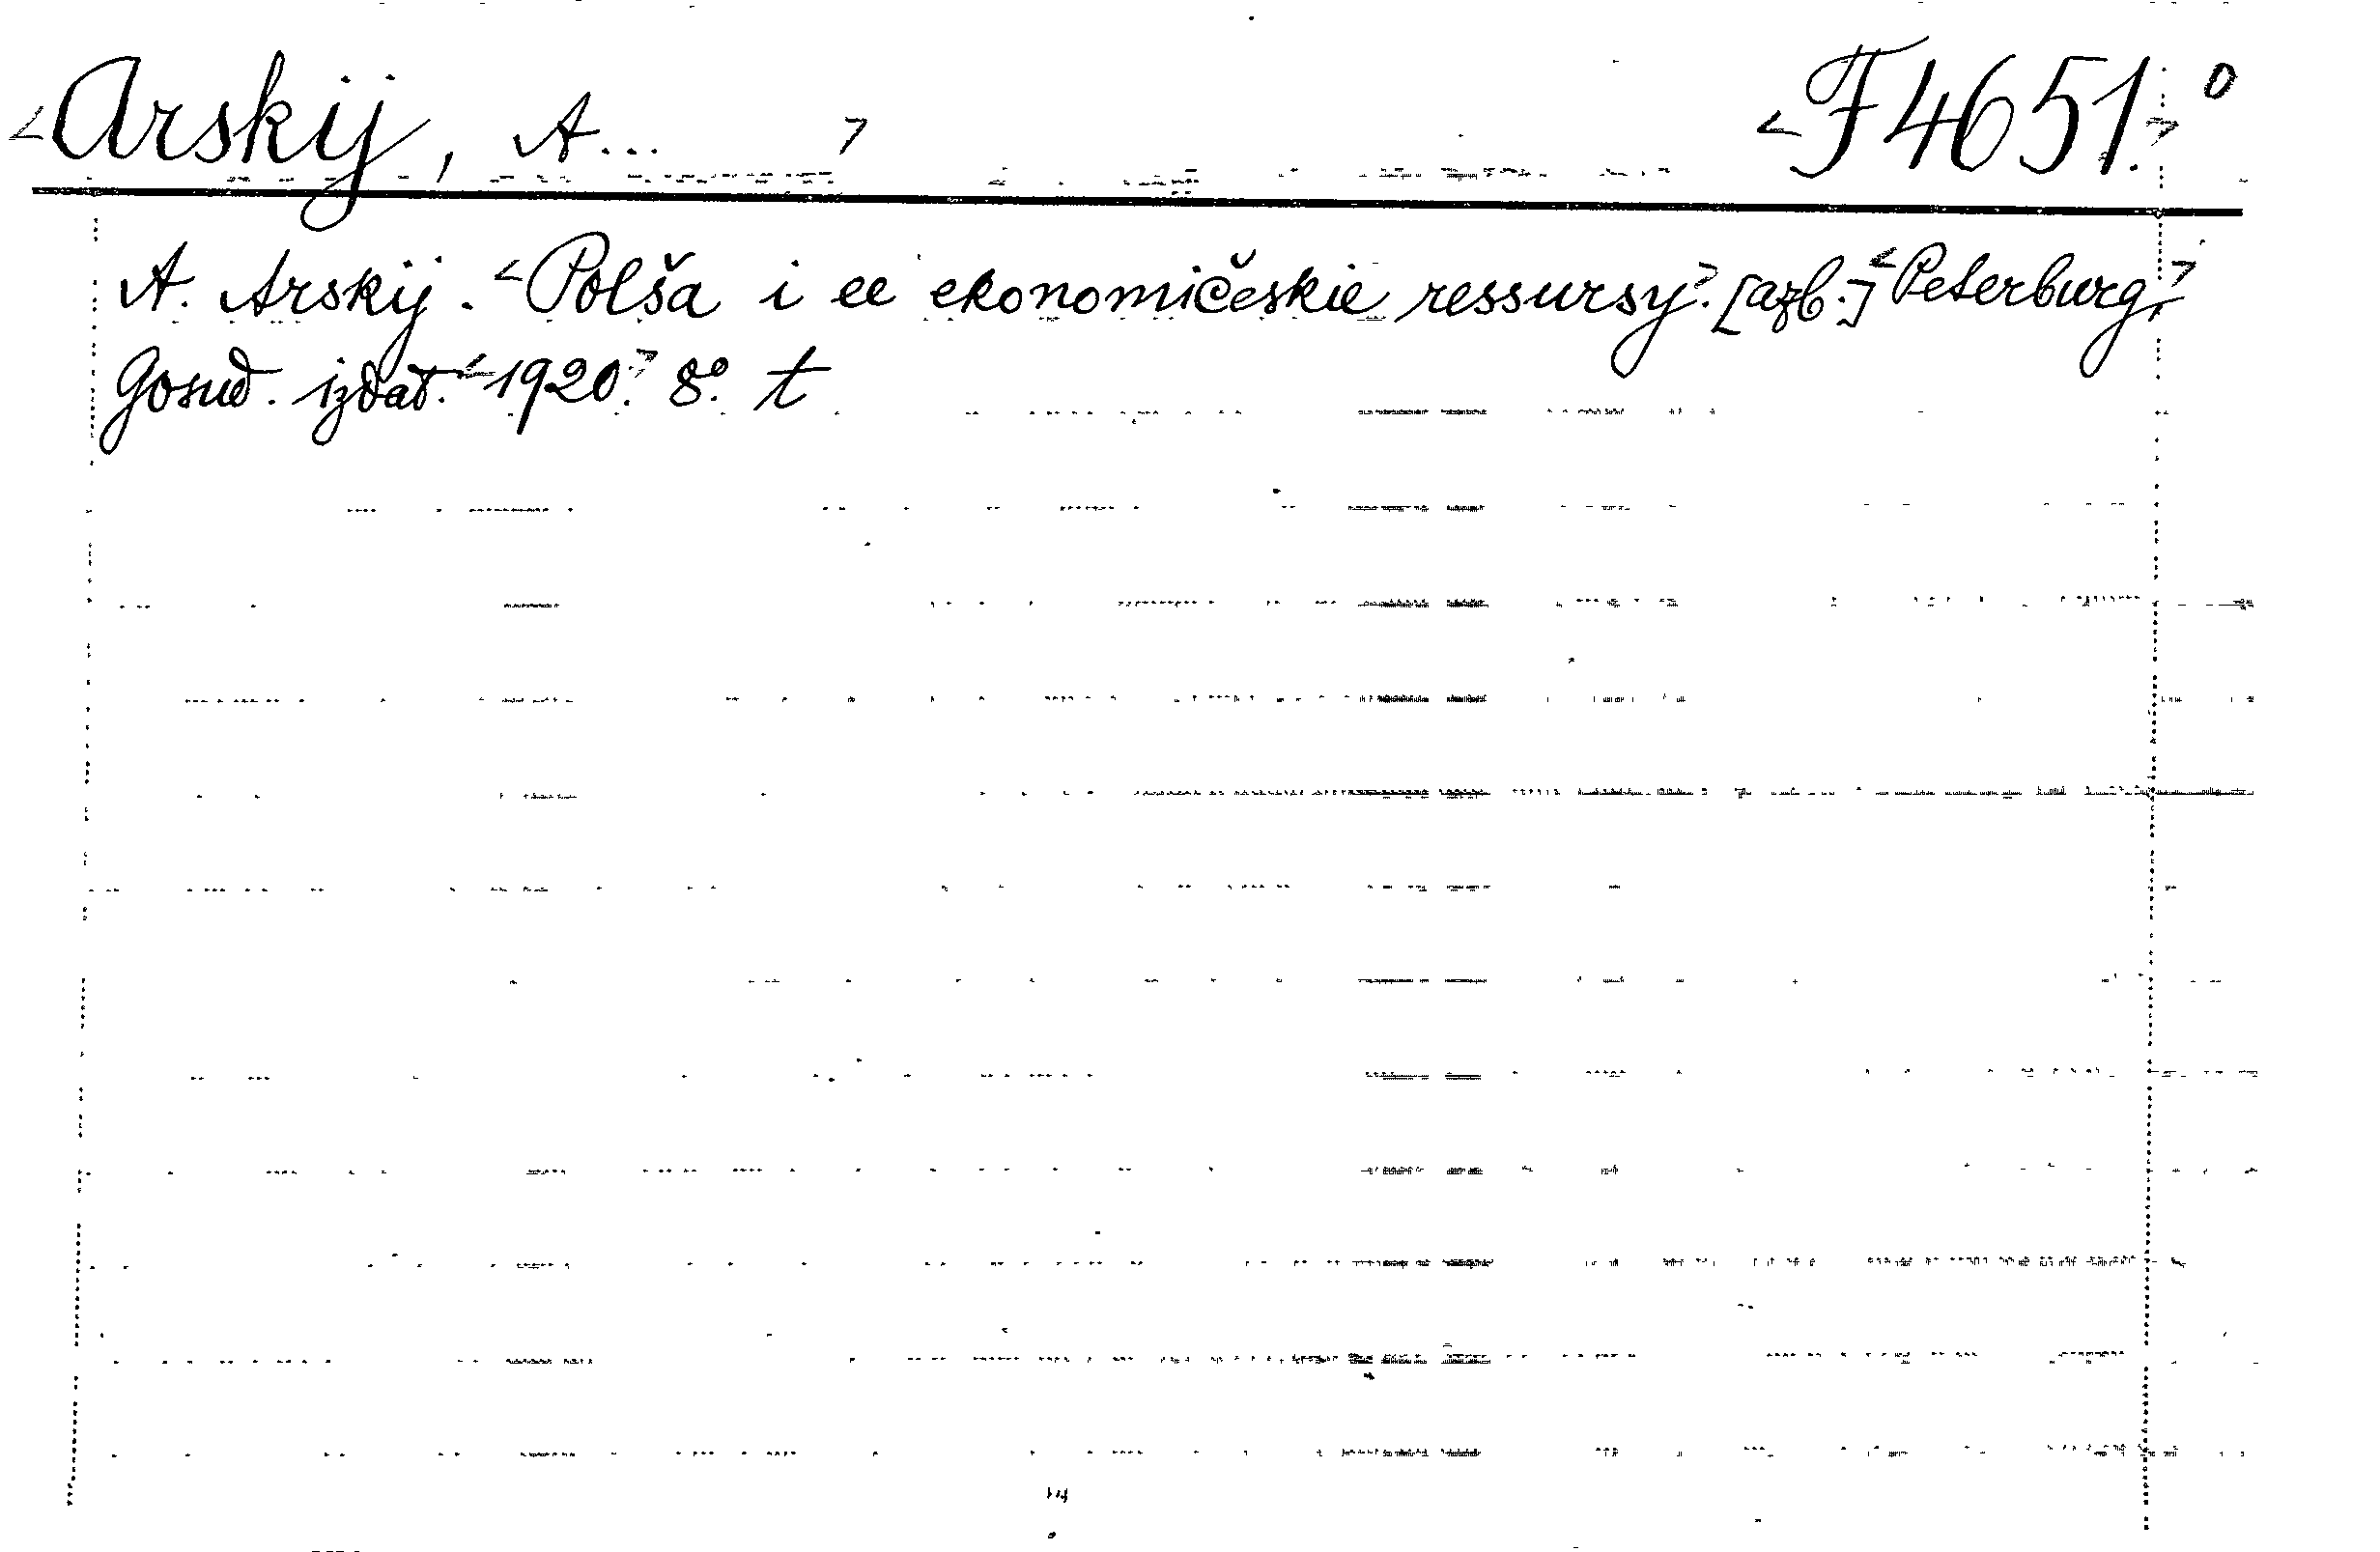 <Arskij, A... > <F 4651.> 0
A. Arskij. <Polša i ee ekonomičeskie ressursy>. [azb.] <Peterburg,>
Gosud. izdat. <1920.> 8°. t